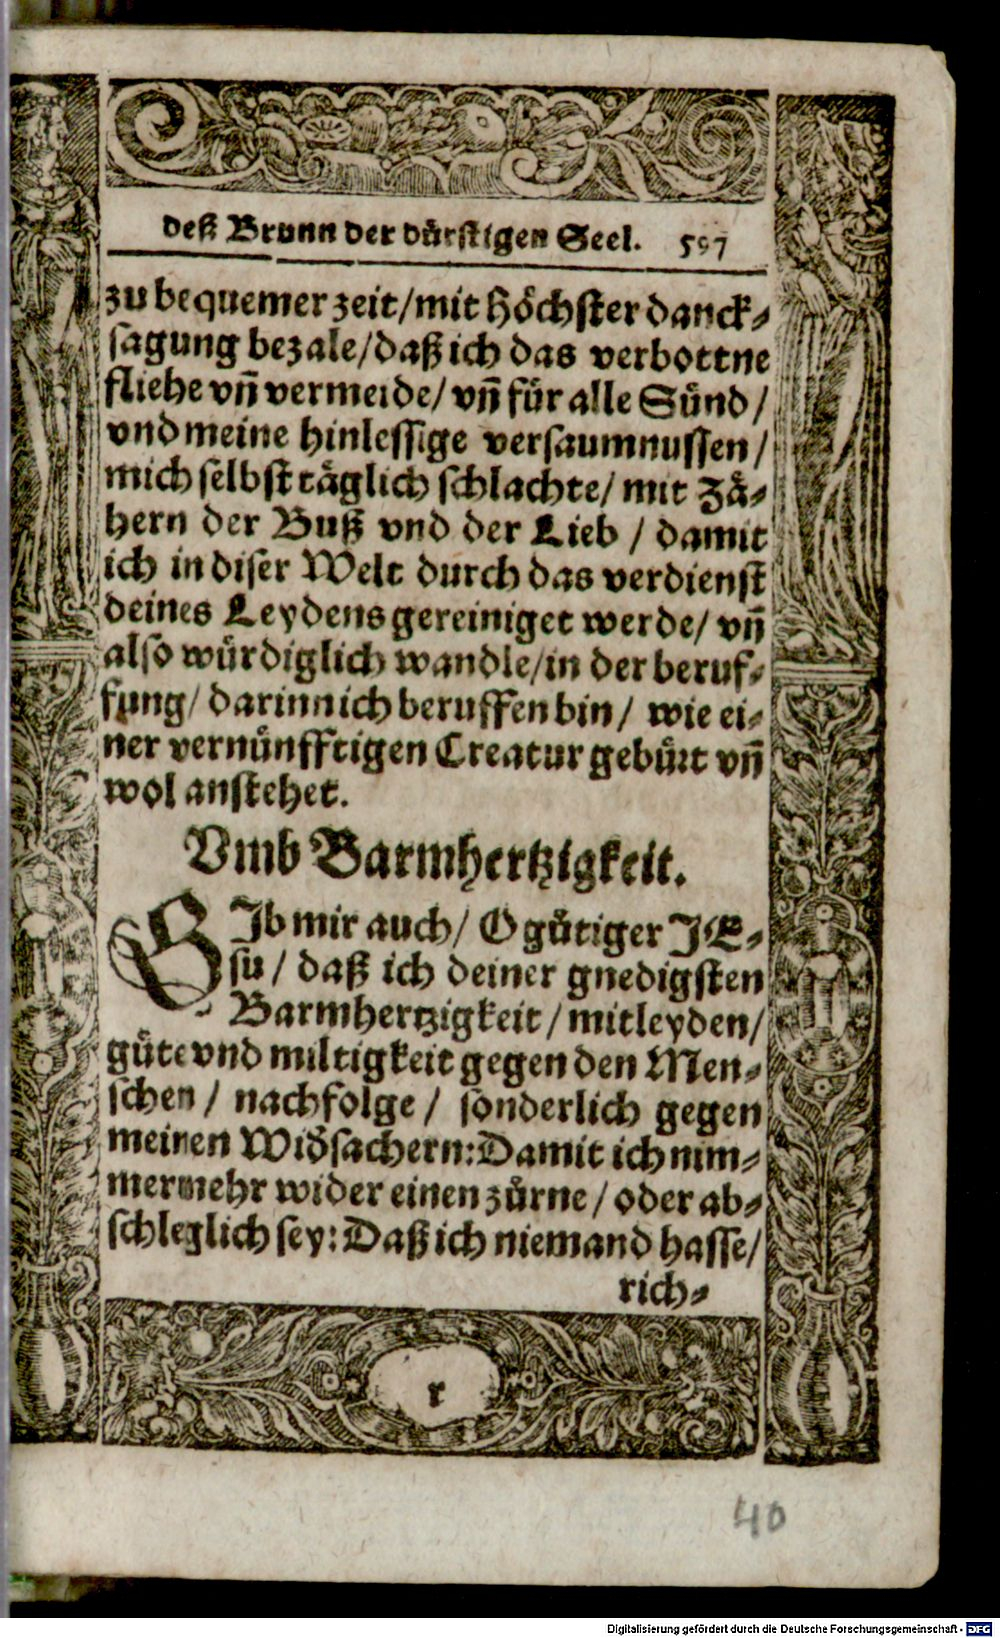 deß Brunn der dürstigen Seel. 597
zu bequemer zeit/mit höchster danck⸗
sagung bezale/daß ich das verbottne
fliehe vñ vermeide/ vñ für alle Sünd/
vnd meine hinlessige versaumnussen/
mich selbst täglich schlachte/ mit Zä⸗
hern der Buß vnd der Lieb / damit
ich in diser Welt durch das verdienst
deines Leydens gereiniget werde/ vñ
also würdiglich wandle/in der beruf⸗
fung/ darinnich beruffen bin/ wie ei⸗
ner vernünfftigen Creatur gebürt vñ
wol anstehet.
Vmb Barmhertzigkeit.
GIb mir auch/ O gütiger JE⸗
su/ daß ich deiner gnedigsten
Barmhertzigkeit/ mitleyden/
güte vnd miltigkeit gegen den Men⸗
schen/ nachfolge/ sonderlich gegen
meinen Widsachern: Damit ich nim⸗
mermehr wider einen zürne/ oder ab⸗
schleglich sey: Daß ich niemand hasse/
rich⸗
r
40
Digitalisierung gefördert durch die Deutsche Forschungsgemeinschaft - DFG